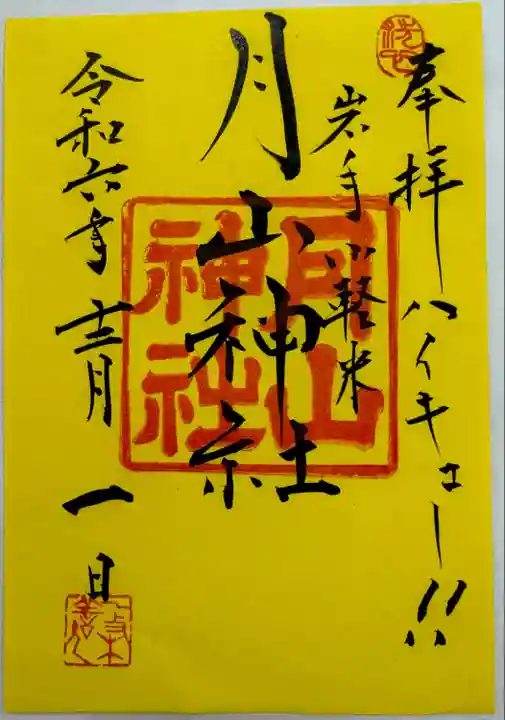 奉拝 ハイキュー!!
岩手 軽米
月山神社
月山神社
令和六年 十二月 一日